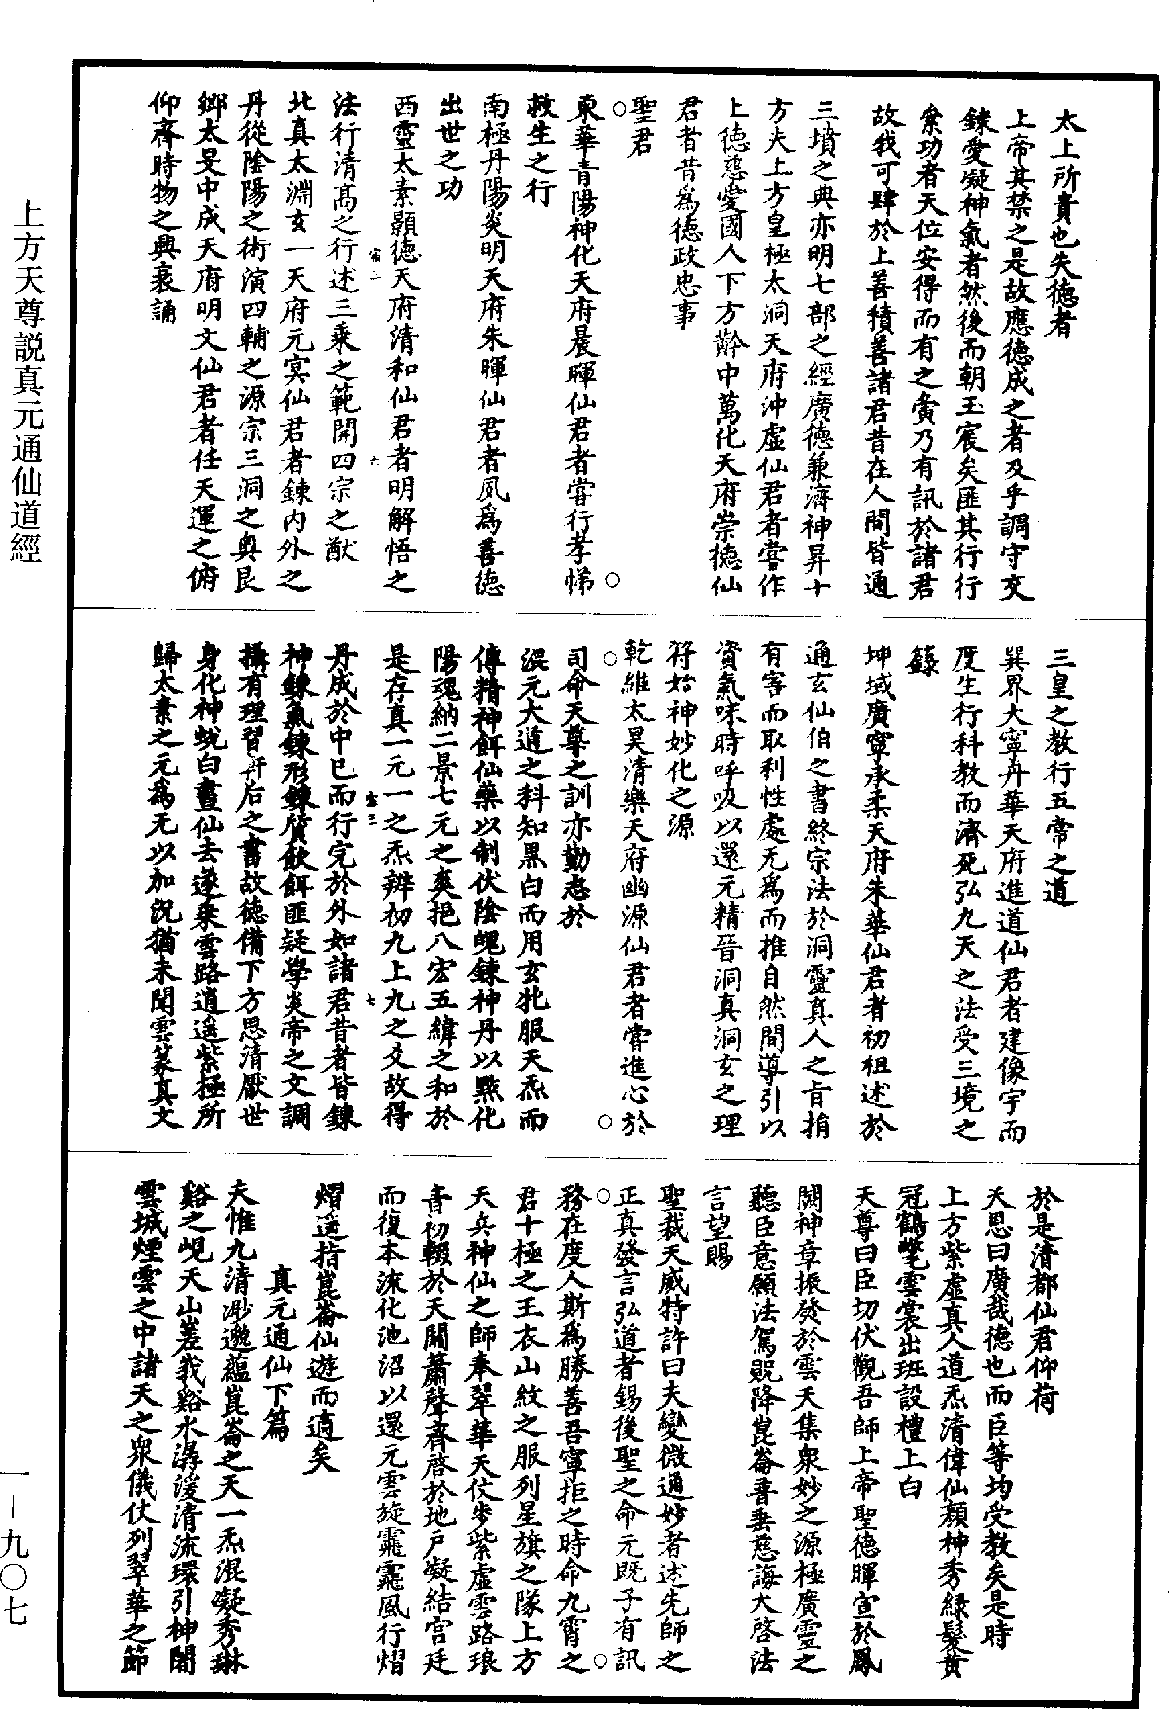 太上所貴也失德者
上帝其禁之是故應德成之者及乎調守交
鍊愛凝神氣者然後而朝玉宸矣匪其行行
累功者天位安得而有之貴乃有訊於諸君
故我可肆於上善積善諸君昔在人間皆通
三墳之典亦明七部之經廣德兼濟神昇十
方夫上方皇極太洞天府沖虛仙君者嘗作
上德惡愛國人下方幹中萬化天府崇德仙
君者昔為德政忠事
聖君
東華青陽神化天府晨暉仙君者嘗行孝悌
救生之行
南極丹陽炎明天府朱暉仙君者夙為善德
出世之功
西靈太素顥德天府清和仙君者明解悟之
法行清高之行述三乘之範開四宗之猷
北真太淵玄一天府元冥仙君者鍊內外之
丹從陰陽之術演四輔之源宗三洞之奧艮
鄉太旻中成天府明文仙君者任天運之俯
仰齊時物之興衰誦
三皇之教行五常之道
巽界大寧丹華天府進道仙君者建像宇而
度生行科教而濟死弘九天之法受三境之
籙
坤域廣寧承柔天府朱華仙君者初祖述於
通玄仙伯之書終宗法於洞靈真人之旨捐
有害而取利性處无為而推自然間導引以
資氣味時呼吸以還元精晉洞真洞玄之理
符始神妙化之源
乾維太昊清樂天府幽源仙君者嘗進心於
司命天尊之訓亦勤志於
混元大道之科知黑白而用玄牝服天炁而
傳精神餌仙藥以制伏陰魄鍊神丹以黙化
陽魂納二景七元之爽挹八宏五緯之和於
是存真一元一之炁辨初九上九之爻故得
丹成於中已而行完於外如諸君昔者皆鍊
神鍊氣鍊形鍊質飲餌匪疑學炎帝之文調
攝有理習丹后之書故德備下方思清厭世
身化神蛻白晝仙去遂乘雲路逍遙紫極所
歸太素之元為无以加況猶未聞雲篆真文
於是清都仙君仰荷
天恩曰廣哉德也而臣等均受教矣是時
上方紫虛真人道炁清偉仙顏神秀綠髮黃
冠鶴氅雲裳出班設禮上白
天尊曰臣切伏觀吾師上帝聖德暉宣於鳳
闕神章振發於雲天集衆妙之源極廣靈之
聽臣意願法駕貺降崑崙普垂慈誨大啓法
言望賜
聖裁天威特許曰夫變微通妙者述先師之
正真發言弘道者錫後聖之命元既子有訊
務在度人斯為勝善吾寧拒之時命九霄之
君十極之王衣山紋之服列星旗之隊上方
天兵神仙之師奉翠華天仗步紫虛雲路琅
音初輟於天關蕭聲齊啓於地戶凝結宮廷
而復本流化池沼以還元雲旋靄靄風行熠
熠遥指崑崙仙遊而適矣
真元通仙下篇
夫惟九清渺邈蘊崑崙之天一炁混凝秀琳
谿之峴天山差我谿水潺湲清流環引神闕
雲城煙雲之中諸天之衆儀仗列翠華之節
上方天尊説真元通仙道經
一－九〇七